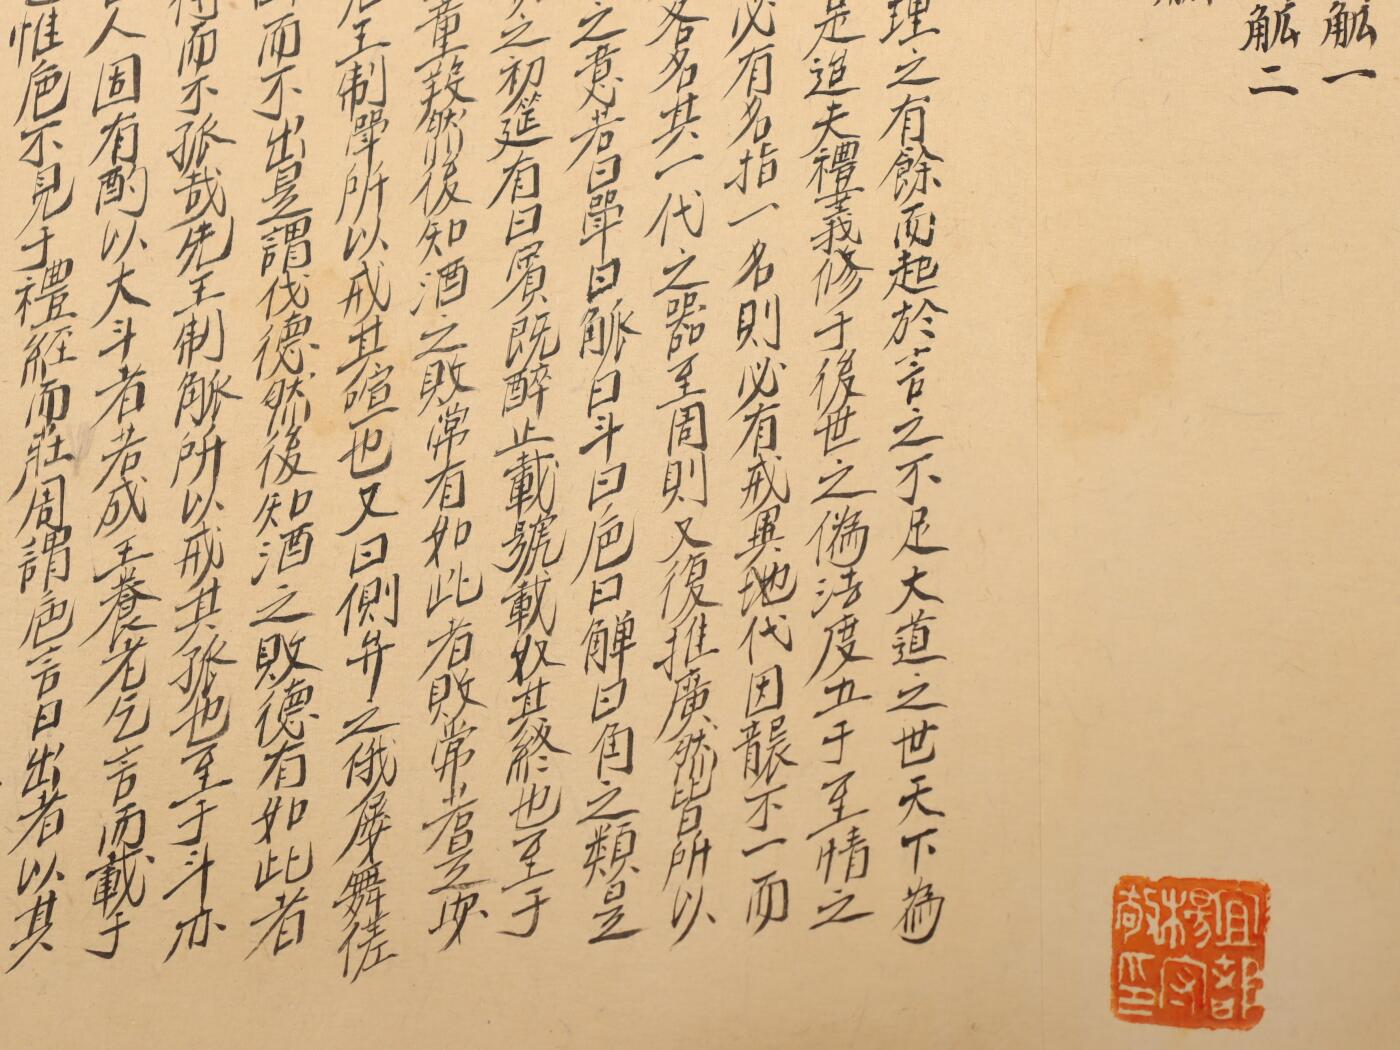 觥一
觥二
理之有餘而起於言之不足大道之世天下為
足追夫禮義修于後世之偽法度立于至情之
必有名指一名則必有戒異地代因襲不一而
各名其一代之器至周則又復推廣然皆所以
之意若曰斝曰觚曰斗曰卮曰觶曰角之類是
之初筵有曰賓既醉止載號載呶其終也至于
童羖然後知酒之敗常有如此者敗常者是必
王制斝所以戒其喧也又曰側弁之俄屢舞傞
而不出是謂伐德然後知酒之敗德有如此者
而不孤哉先王制觚所以戒其孤也至于斗亦
人固有酌以大斗者若成王養老乞言而載于
惟卮不見于禮經而莊周謂卮言日出者以其